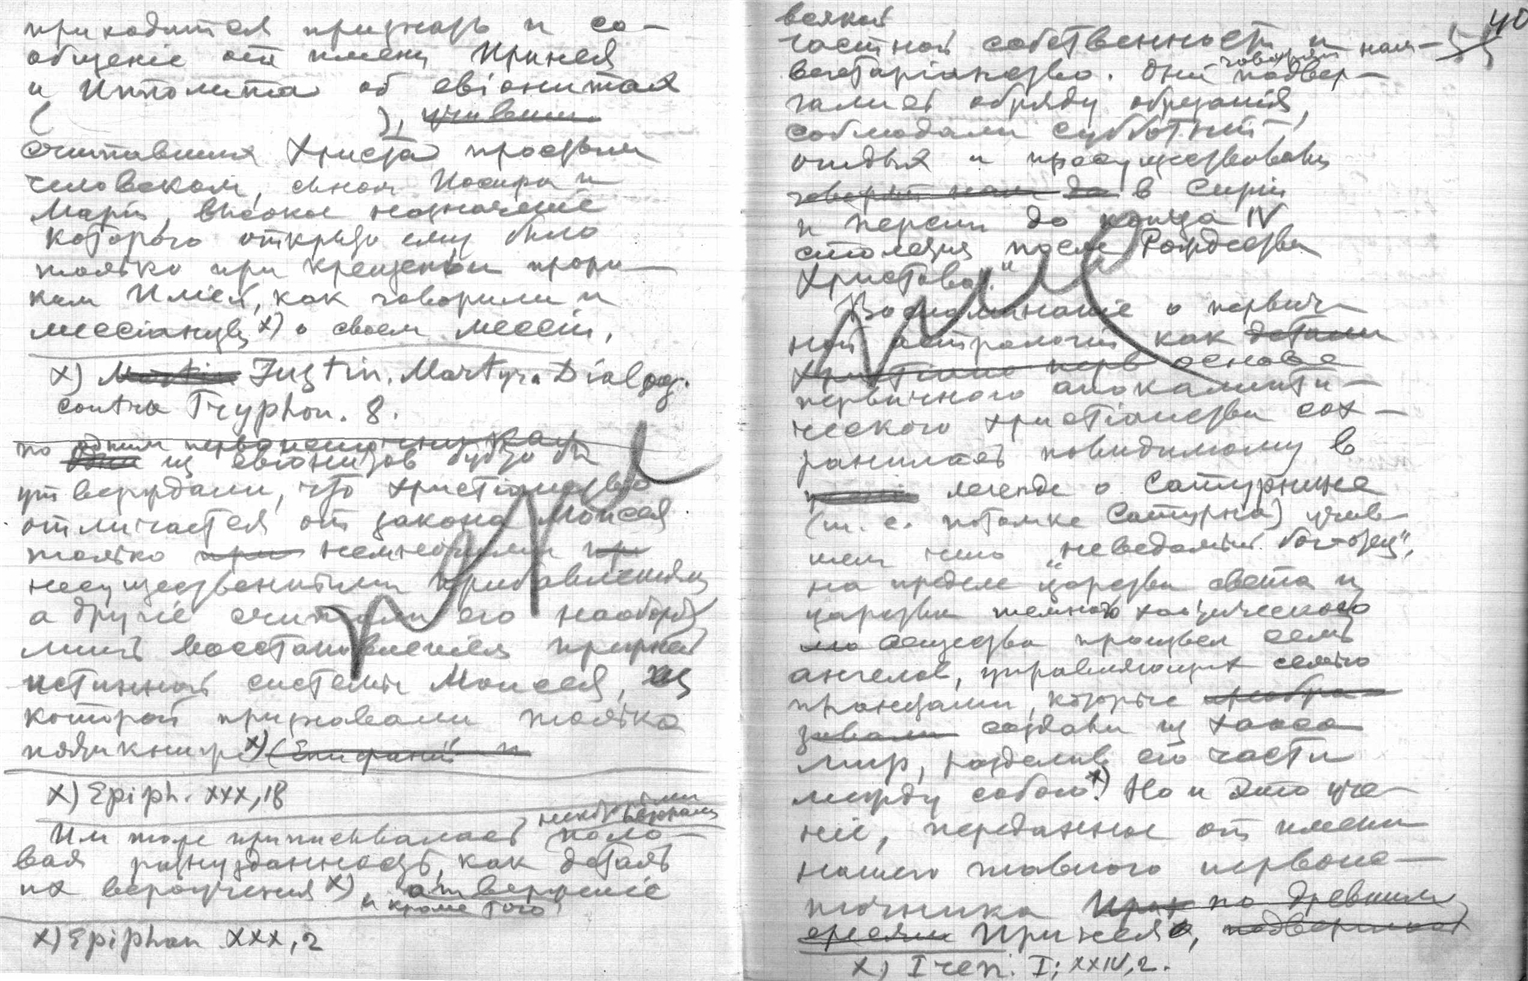 приходится признать и со-
общеніе от имени Иринея
и Ипполита об евіонитах
( ), учивших
считавших Христа простым
человеком, сыном Иосифа и
Маріи, высокое назначеніе
которого открыто ему было
только при крещеньи проро-
ком Ильей, как говорили и
мессіанцы х) о своем мессіи.
х) Martin Justin. Martyr. Dialog.
contra Tryphon. 8.
по одним первоисточникам
одни из евіонитов будто бы
утверждали, что христіанство
отличается от закона Моисея
только при немногими пр
несущественными прибавленіями
а другіе считали его наоборот
лишь восстановленіем прежней
истинной системы Моисея, из
которой признавали только
пятикнижіе х) (Епифаній и
х) Epiph. XXX, 18
Им тоже приписывалась некоторыми авторами поло-
вая разнузданность, как деталь
их вероученія х), и кроме того отверженіе
х) Epiphan XXX, 2
40
всякой
частной собственности и
вегетаріанство. Они говорят подвер-
гались обряду обрезанія,
соблюдали субботний
отдых и просуществовали
говорят нам до в Сиріи
и Персии до конца IV
столетия после Рождества
Христова."
Воспоминание о первич-
ной астрологіи как детали
Христиано перв основе
первичного апокалипти-
ческого христіанства сох-
ранилась повидимому в
легенде о Сатурнине
(т. е. потомке Сатурна) учив-
шем что „неведомый бог-отец",
на пределе царства света и
царства темного хаотического
го вещества произвел семь
ангелов, управляющих семью
планетами, которые преобра-
зовали создали из хаоса
мир, разделив его части
между собою. х) Но и это уче-
ніе, переданное от имени
нашего главного первоис-
точника Ирин по древним
ересям Иринея,
х) Iren. I; XXIV, 2.